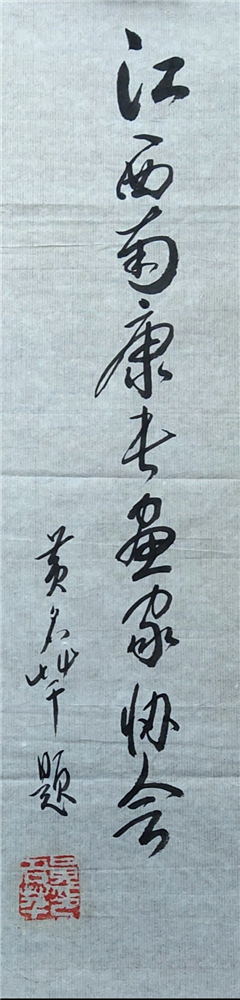 江西南康书画家协会
黄名芊题